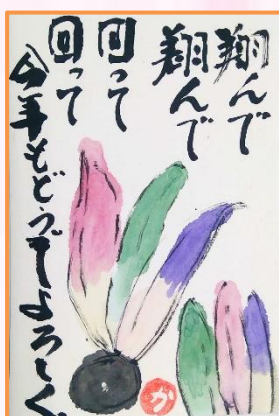 翔んで
翔んで
回って
回って
今年もどうぞよろしく。
か